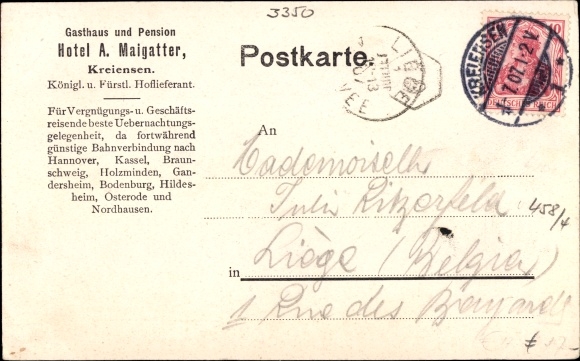 3350
Gasthaus und Pension
Hotel A. Maigatter,
Kreiensen.
Königl. u. Fürstl. Hoflieferant.
Für Vergnügungs- u. Geschäfts-
reisende beste Uebernachtungs-
gelegenheit, da fortwährend
günstige Bahnverbindung nach
Hannover, Kassel, Braun-
schweig, Holzminden, Gan-
dersheim, Bodenburg, Hildes-
heim, Osterode und
Nordhausen.
Postkarte.
LIEGE
JUILLET
KREIENSEN
7.07.1-2 V
10
DEUTSCHES REICH
An
Mademoiselle
Juli Ritzerfeld
458/4
in Liège (Belgia)
1 Rue des Bayards